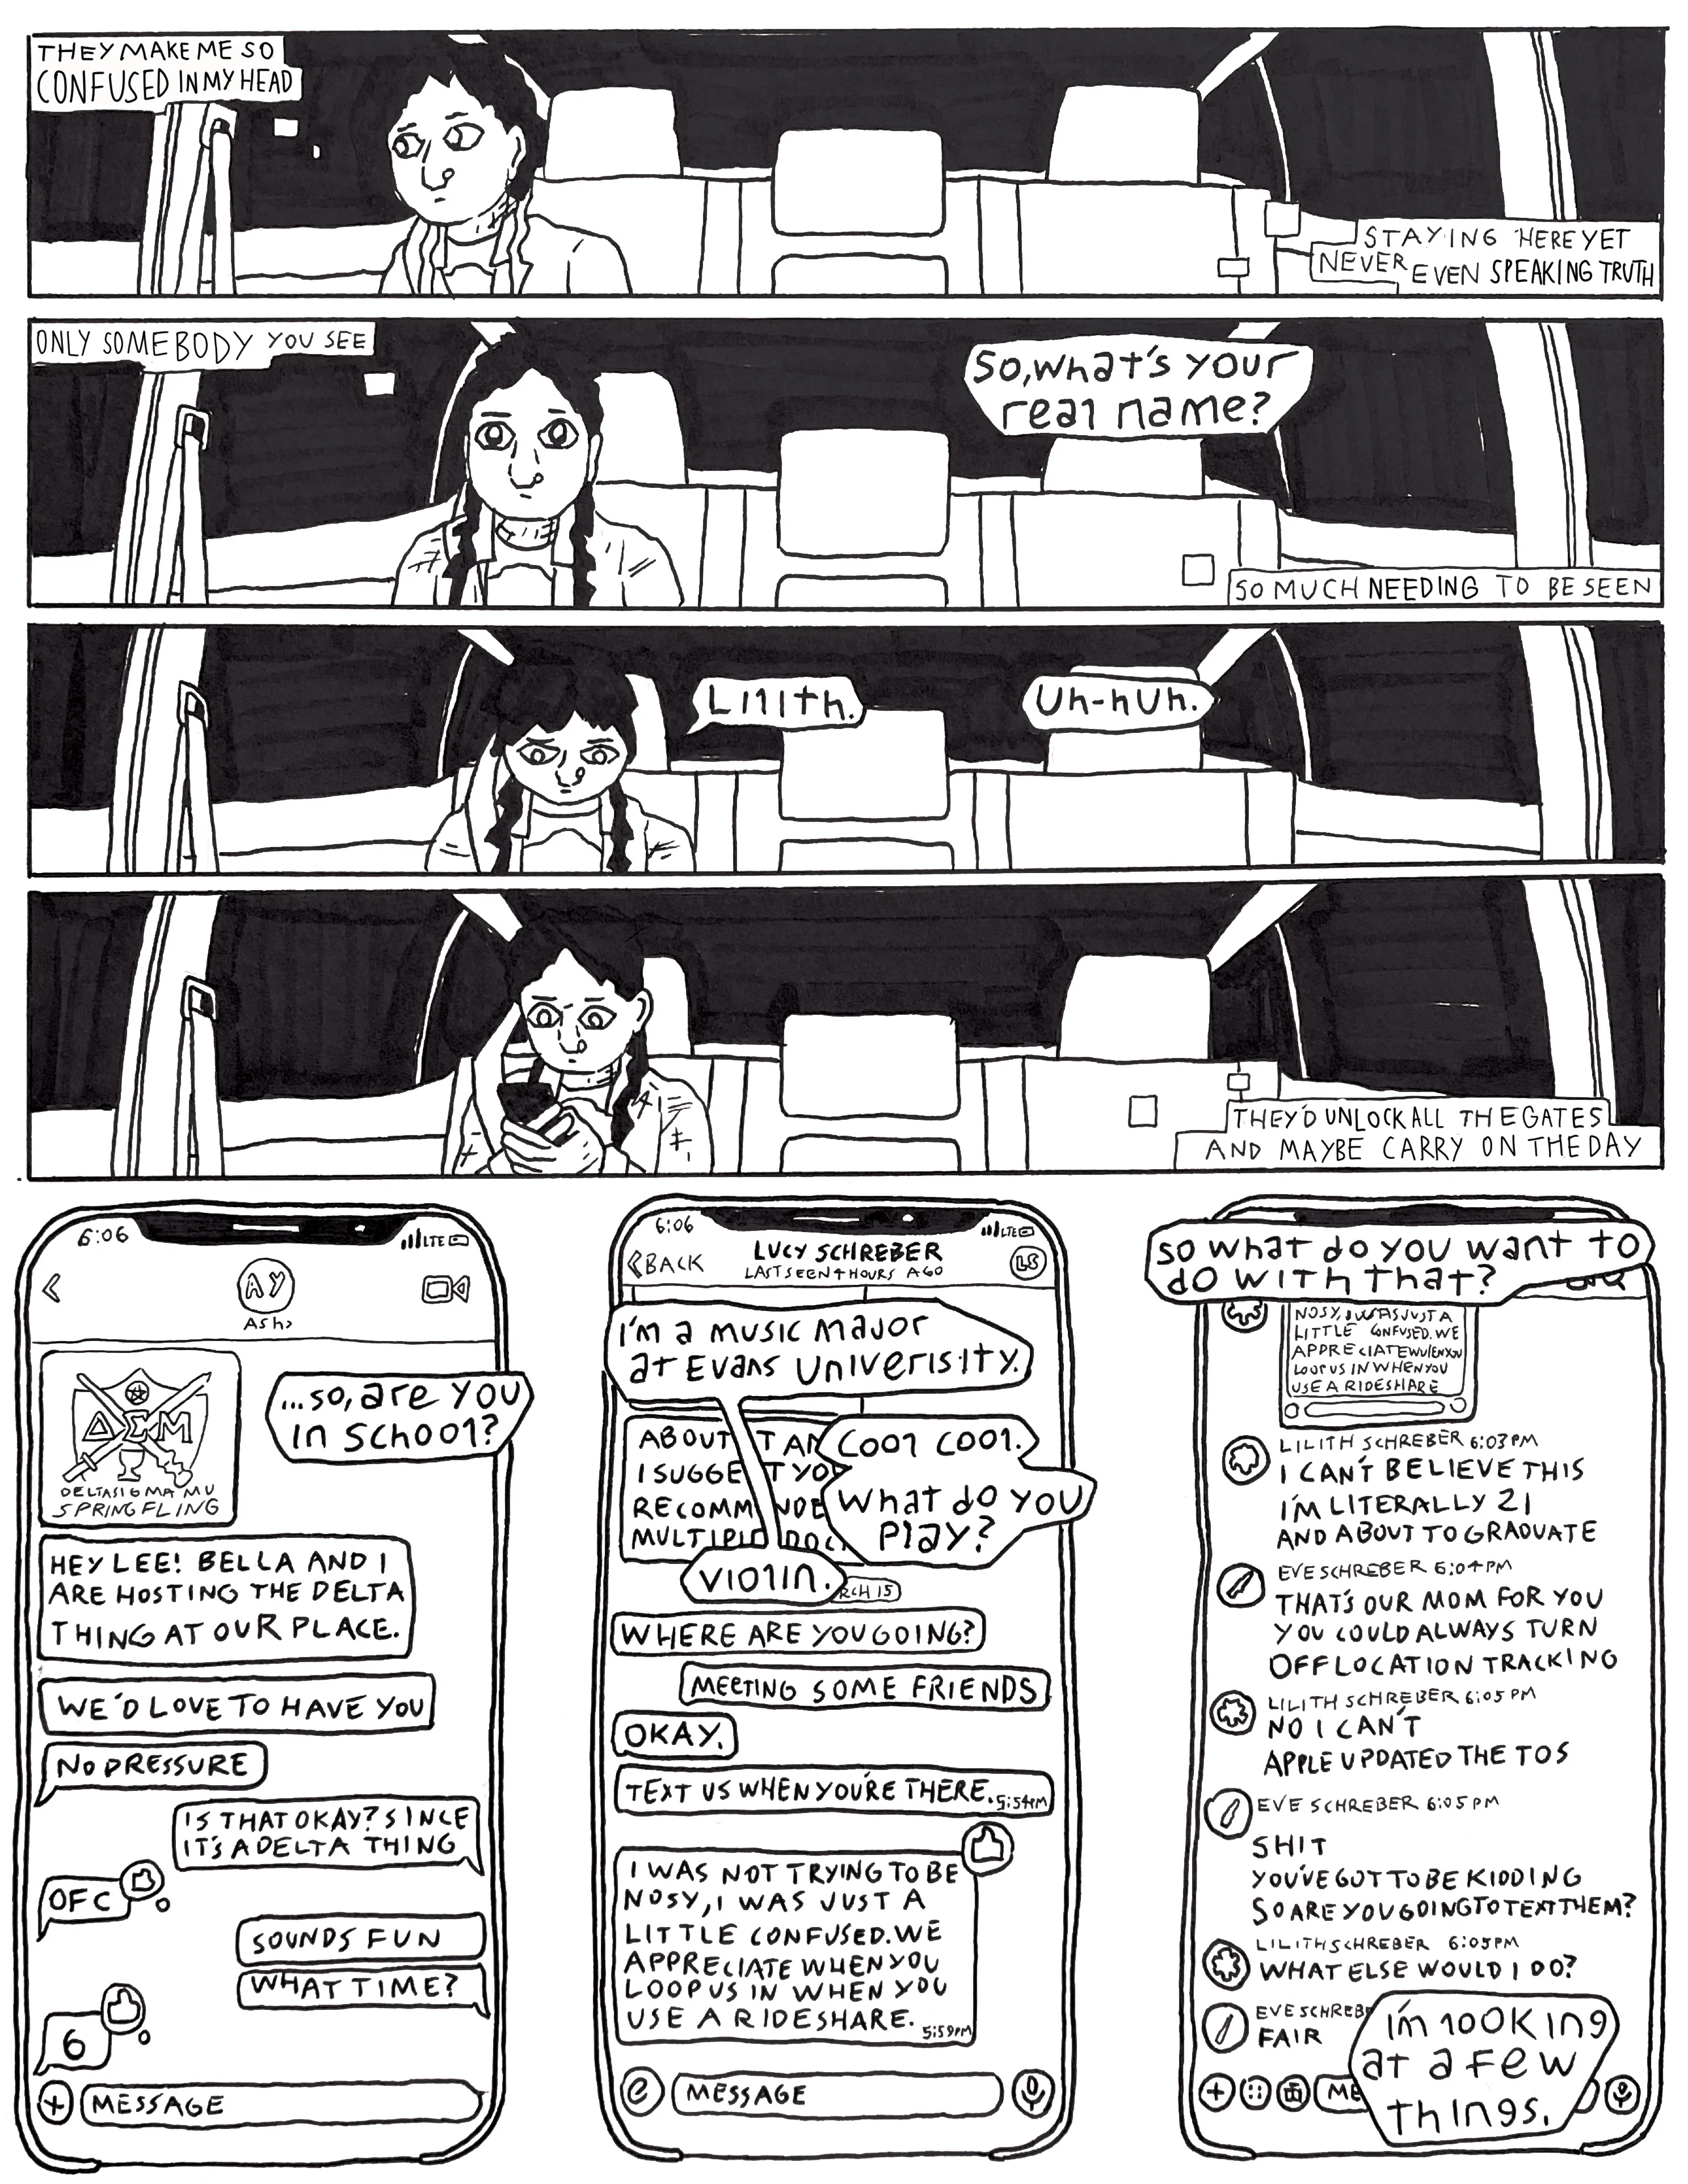 THEY MAKE ME SO
CONFUSED IN MY HEAD
STAYING HERE YET
NEVER EVEN SPEAKING TRUTH
ONLY SOMEBODY YOU SEE
So, what's your
real name?
SO MUCH NEEDING TO BE SEEN
Lilith.
Uh-huh.
THEY'D UNLOCK ALL THE GATES
AND MAYBE CARRY ON THE DAY
6:06
LTE
AY
Ash>
ΔΣM
DELTA SIGMA MU
SPRING FLING
...so, are you
in school?
HEY LEE! BELLA AND I
ARE HOSTING THE DELTA
THING AT OUR PLACE.
WE'D LOVE TO HAVE YOU
NO PRESSURE
IS THAT OKAY? SINCE
IT'S A DELTA THING
OFC
SOUNDS FUN
WHAT TIME?
6
+
MESSAGE
6:06
LTE
<BACK
LUCY SCHREBER
LAST SEEN 4 HOURS AGO
LS
I'm a music major
at Evans Univerisity.
ABOUT
I SUGGE
RECOMM
MULTIPL
Cool cool.
What do you
play?
Violin.
RCH 15
WHERE ARE YOU GOING?
MEETING SOME FRIENDS
OKAY.
TEXT US WHEN YOU'RE THERE. 5:54PM
I WAS NOT TRYING TO BE
NOSY, I WAS JUST A
LITTLE CONFUSED. WE
APPRECIATE WHEN YOU
LOOP US IN WHEN YOU
USE A RIDESHARE. 5:59PM
MESSAGE
So what do you want to
do with that?
NOSY, I WAS JUST A
LITTLE CONFUSED. WE
APPRECIATE WHEN YOU
LOOP US IN WHEN YOU
USE A RIDESHARE
LILITH SCHREBER 6:03PM
I CAN'T BELIEVE THIS
I'M LITERALLY 21
AND ABOUT TO GRADUATE
EVE SCHREBER 6:04PM
THAT'S OUR MOM FOR YOU
YOU COULD ALWAYS TURN
OFF LOCATION TRACKING
LILITH SCHREBER 6:05PM
NO I CAN'T
APPLE UPDATED THE TOS
EVE SCHREBER 6:05PM
SHIT
YOU'VE GOT TO BE KIDDING
SO ARE YOU GOING TO TEXT THEM?
LILITH SCHREBER 6:05PM
WHAT ELSE WOULD I DO?
EVE SCHREBE
FAIR
+
ME
I'm looking
at a few
things.